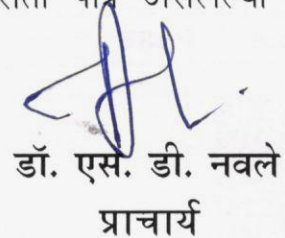 डॉ. एस. डी. नवले
प्राचार्य